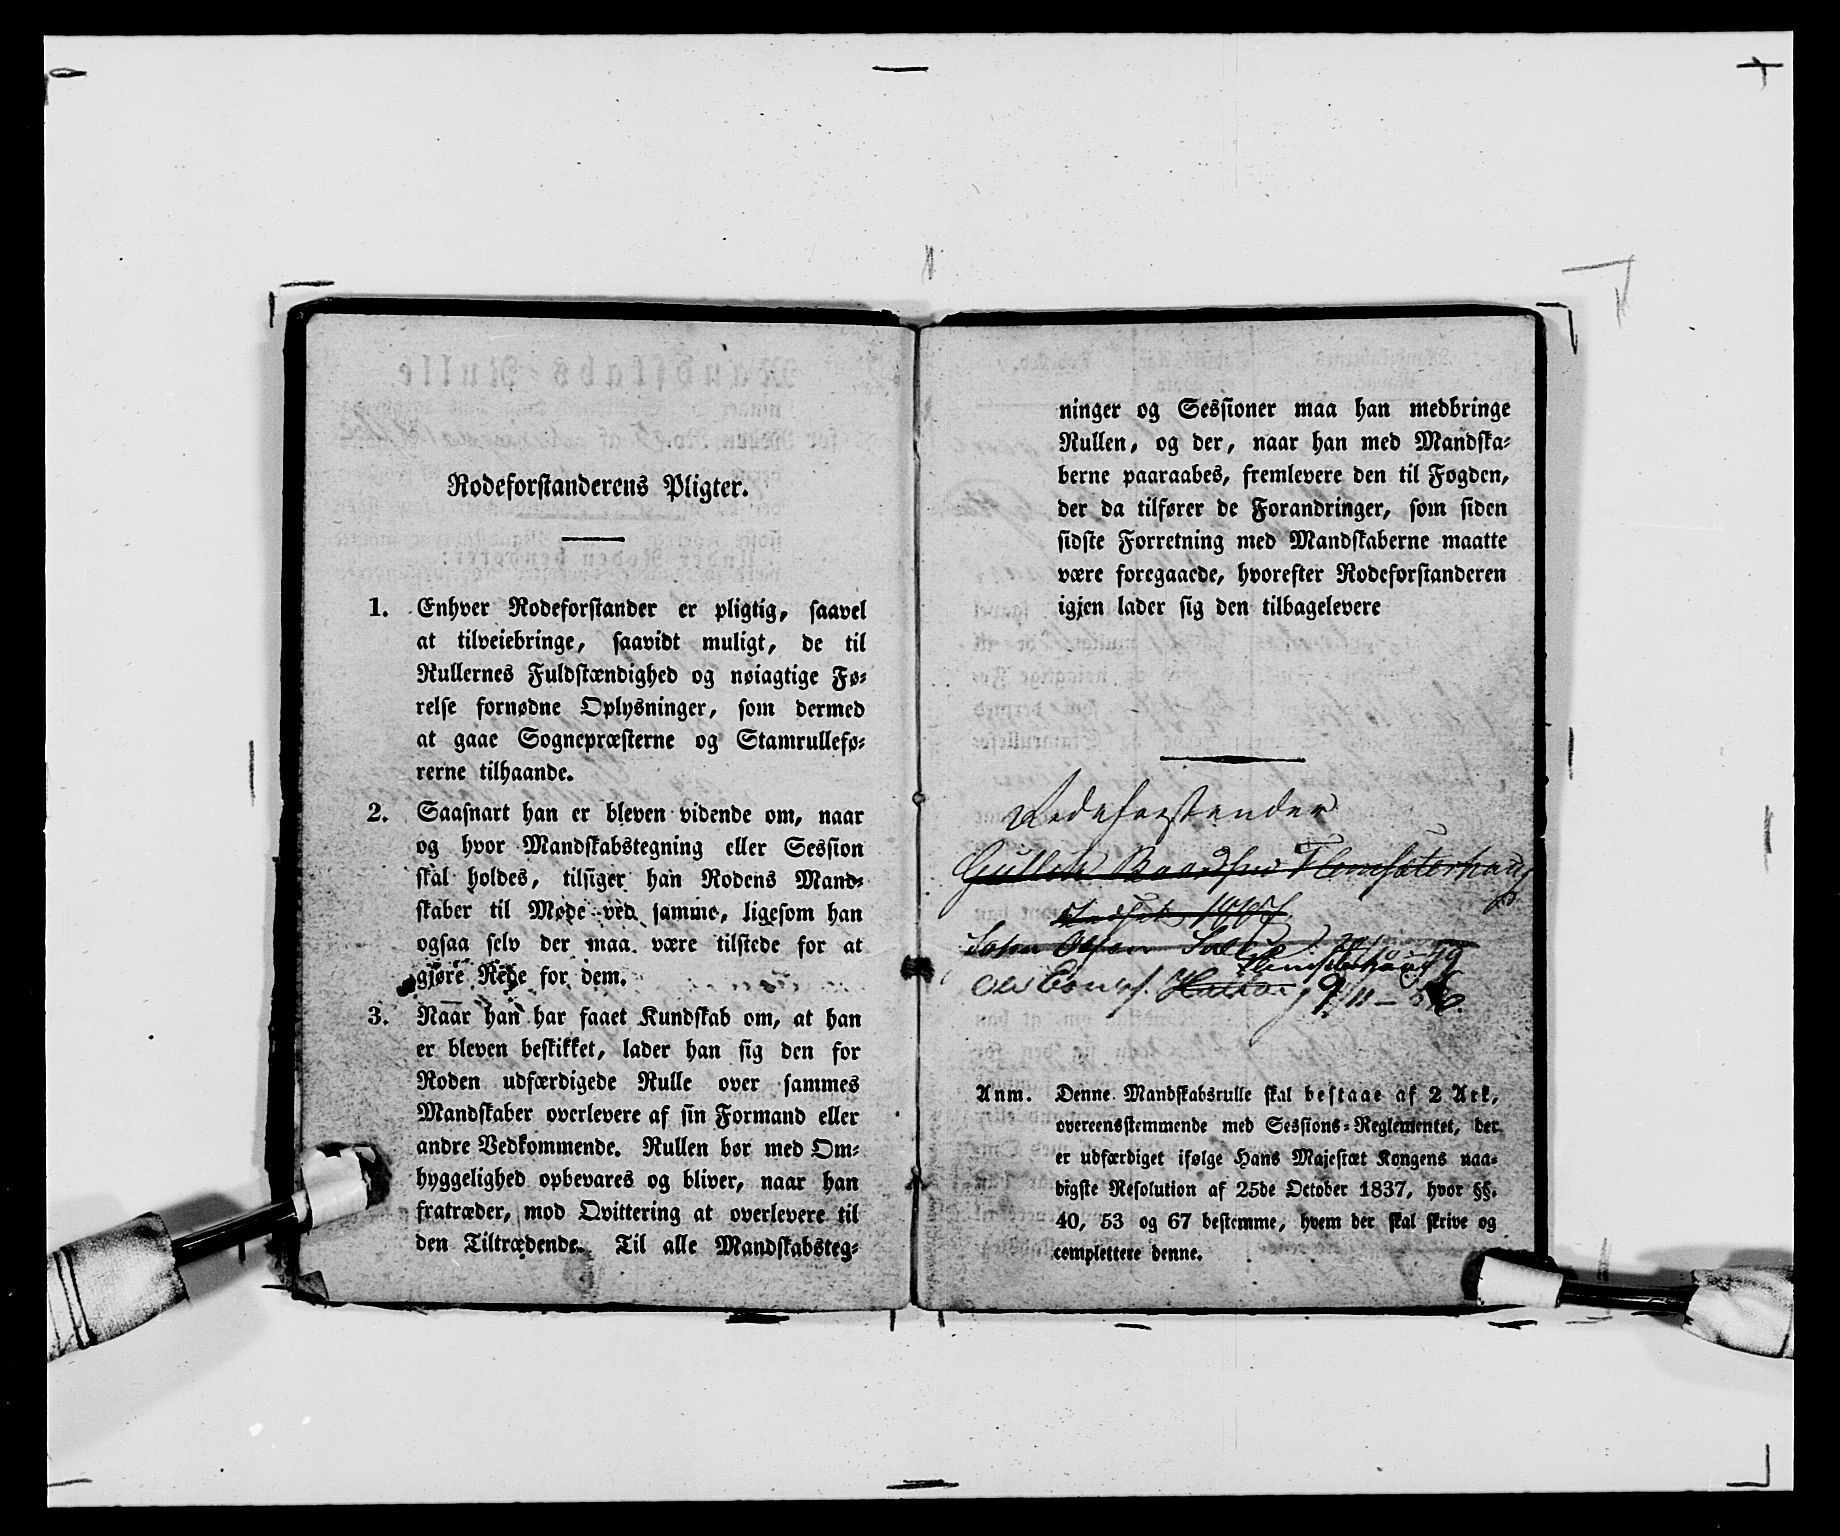 Rodeforstanderens Pligter.
1. Enhver Rodeforstander er pligtig, saavel
at tilveiebringe, saavidt muligt, de til
Rullernes Fuldstændighed og nøiagtige Fø-
relse fornødne Oplysninger, som dermed
at gaae Sognepræsterne og Stamrullefø-
rerne tilhaande.
2. Saasnart han er bleven vidende om, naar
og hvor Mandskabstegning eller Session
skal holdes, tilsiger han Rodens Mand-
skaber til Møde ved samme, ligesom han
ogsaa selv der maa være tilstede for at
gjøre Rede for dem.
3. Naar han har faaet Kundskab om, at han
er bleven beskikket, lader han sig den for
Roden udfærdigede Rulle over sammes
Mandskaber overlevere af sin Formand eller
andre Vedkommende. Rullen bør med Om-
hyggelighed opbevares og bliver, naar han
fratræder, mod Qvittering at overlevere til
den Tiltrædende. Til alle Mandskabsteg-
ninger og Sessioner maa han medbringe
Rullen, og der, naar han med Mandska-
berne paaraabes, fremlevere den til Fogden,
der da tilfører de Forandringer, som siden
sidste Forretning med Mandskaberne maatte
være foregaaede, hvorefter Rodeforstanderen
igjen lader sig den tilbagelevere
Rodeforstander
Gullek Baardsen Flemsæterhaug
Olsen
Flemsæterhaug
Ole
Anm. Denne Mandskabsrulle skal bestaae af 2 Ark,
overeensstemmende med Sessions-Reglementet, der
er udfærdiget ifølge Hans Majestæt Kongens naa-
digste Resolution af 25de October 1837, hvor §§.
40, 53 og 67 bestemme, hvem der skal skrive og
complettere denne.